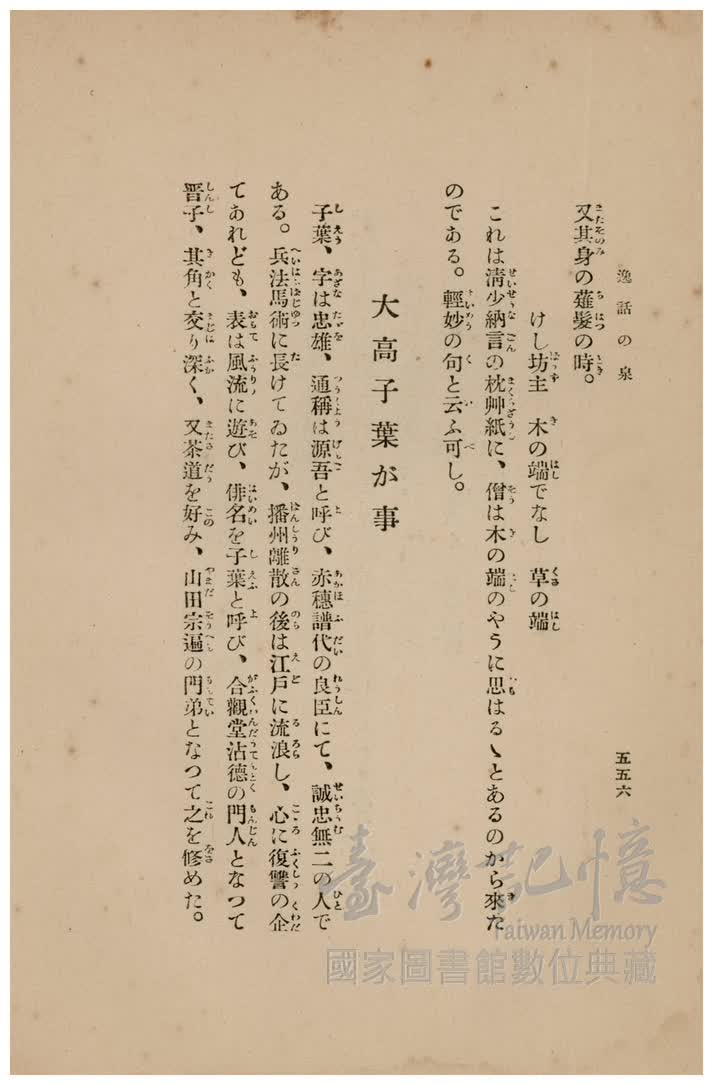 逸話の泉
五五六
又其身の薙髮の時。
けし坊主 木の端でなし 草の端
これは淸少納言の枕艸紙に、僧は木の端のやうに思はるゝとあるのから來た
のである。輕妙の句と云ふ可し。
大高子葉が事
子葉、字は忠雄、通稱は源吾と呼び、赤穗譜代の良臣にて、誠忠無二の人で
ある。兵法馬術に長けてゐたが、播州離散の後は江戶に流浪し、心に復讐の企
てあれども、表は風流に遊び、俳名を子葉と呼び、合觀堂沾德の門人となつて
晋子、其角と交り深く、又茶道を好み、山田宗遍の門弟となつて之を修めた。
臺灣記憶
Taiwan Memory
國家圖書館數位典藏